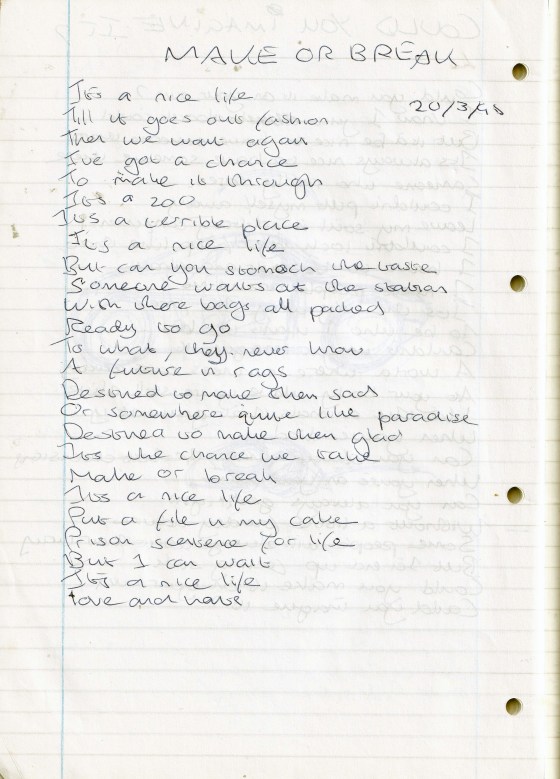 MAKE OR BREAK
20/3/98
It's a nice life
Till it goes out fashion
Then we wait again
I've got a chance
To make it through
It's a zoo
It's a terrible place
It's a nice life
But can you stomach the taste
Someone waits at the station
With there bags all packed
Ready to go
To what, they never know
A future n rags
Designed to make them sad
Or somewhere quite like paradise
Designed to make them glad
It's the chance we take
Make or break
It's a nice life
Put a file n my cake
Prison sentense for life
But I can wait
It's a nice life
Love and hate